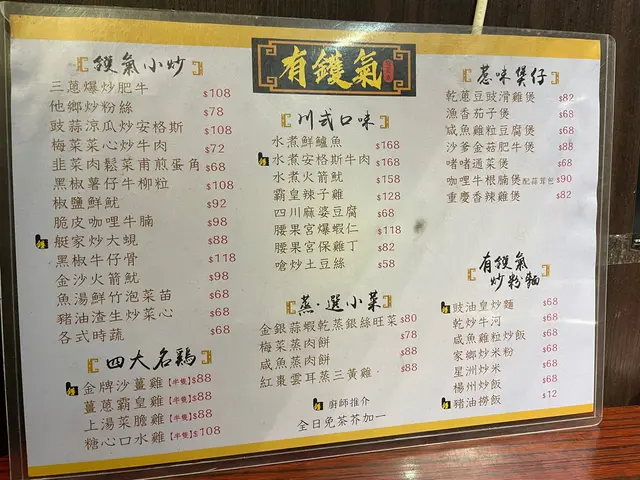 有鑊氣
鑊氣小炒
三蔥爆炒肥牛 $108
他鄉炒粉絲 $78
豉蒜涼瓜炒安格斯 $108
梅菜菜心炒牛肉 $72
韭菜肉鬆菜甫煎蛋角 $68
黑椒薯仔牛柳粒 $108
椒鹽鮮魷 $92
脆皮咖哩牛腩 $98
艇家炒大蜆 $88
黑椒牛仔骨 $118
金沙火箭魷 $98
魚湯鮮竹泡菜苗 $68
豬油渣生炒菜心 $68
各式時蔬 $68
四大名鷄
金牌沙薑雞【半隻】$88
薑蔥霸皇雞【半隻】$88
上湯菜膽雞【半隻】$88
糖心口水雞【半隻】$108
川式口味
水煮鮮鱸魚 $168
水煮安格斯牛肉 $168
水煮火箭魷 $158
霸皇辣子雞 $128
四川麻婆豆腐 $68
腰果宮爆蝦仁 $118
腰果宮保雞丁 $82
嗆炒土豆絲 $58
蒸·選小菜
金銀蒜蝦乾蒸銀絲旺菜 $80
梅菜蒸肉餅 $78
咸魚蒸肉餅 $88
紅棗雲耳蒸三黃雞 $88
廚師推介
全日免茶芥加一
惹味煲仔
乾蔥豆豉滑雞煲 $82
漁香茄子煲 $68
咸魚雞粒豆腐煲 $68
沙爹金菇肥牛煲 $88
啫啫通菜煲 $68
咖哩牛根腩煲配蒜茸包 $90
重慶香辣雞煲 $82
有鑊氣
炒粉麵
豉油皇炒麵 $68
乾炒牛河 $68
咸魚雞粒炒飯 $68
家鄉炒米粉 $68
星洲炒米 $68
楊州炒飯 $68
豬油撈飯 $12